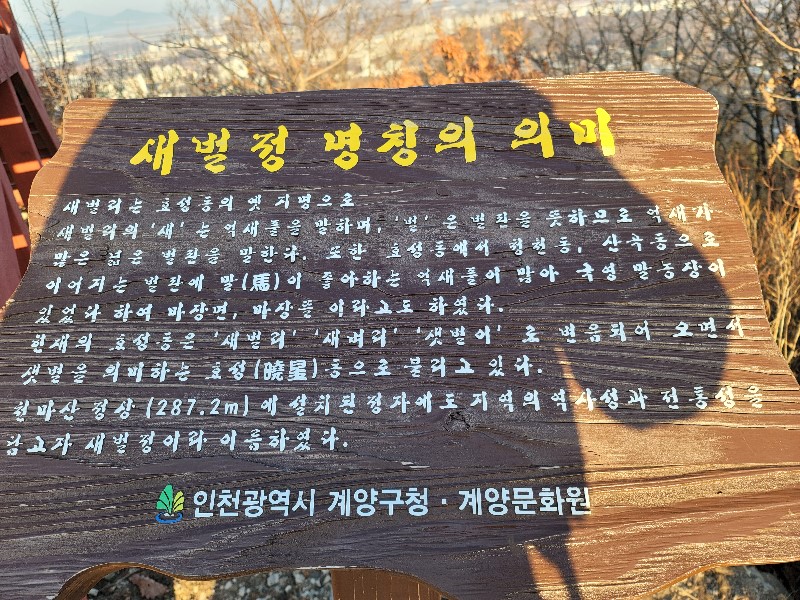 새벌정 명칭의 의미
새벌리는 효성동의 옛 지명으로
새벌리의 '새'는 억새풀을 말하며, '벌'은 벌판을 뜻하므로 억새가
많은 넓은 벌판을 말한다. 또한 효성동에서 청천동, 산곡동으로
이어지는 벌판에 말(馬)이 좋아하는 억새풀이 많아 국영 말농장이
있었다 하여 마장면, 마장뜰 이라고도 하였다.
현재의 효성동은 '새벌리' '새벼리' '샛별이' 로 변음되어 오면서
샛별을 의미하는 효성(曉星)동으로 불리고 있다.
천마산 정상(287.2m)에 설치된 정자에도 지역의 역사성과 전통성을
담고자 새벌정이라 이름하였다.
인천광역시 계양구청 · 계양문화원